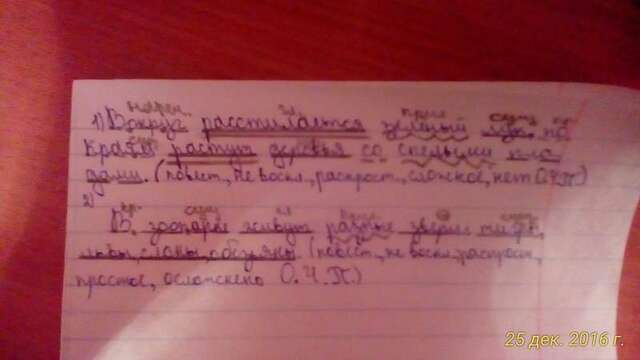 нареч. гл. прил. сущ. пр.
1) Вокруг расстилается зелёный луг. по
краям растут деревья со спелыми пло
дами. (повест., не воскл., распрост., сложное, нет О.Ч.П)
2) пр. сущ. гл. сущ.
В зоопарке живут разные звери: тигры,
львы, слоны, обезьяны. (повест., не воскл., распрост.,
простое, осложнено О.Ч.П.)
25 дек. 2016 г.